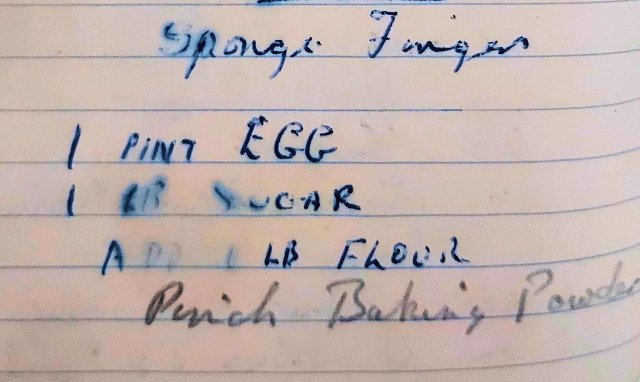 Sponge Fingers
1 PINT EGG
1 LB SUGAR
ADD 1 LB FLOUR
Pinch Baking Powder